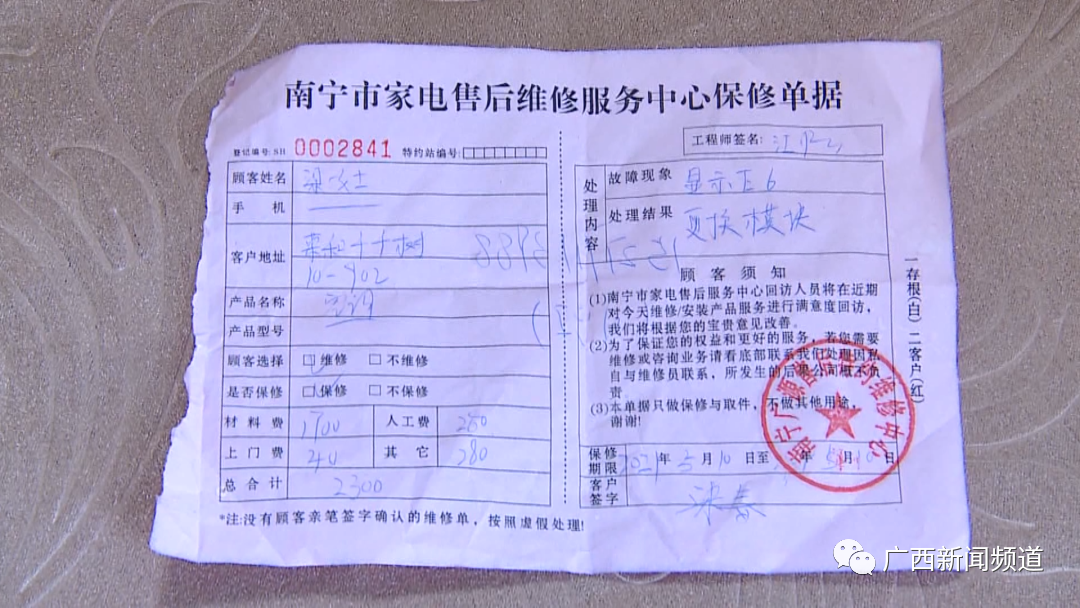 南宁市家电售后维修服务中心保修单据
登记编号:SH 0002841 特约站编号:
工程师签名:
顾客姓名
手机
客户地址
10-902
产品名称 空调
产品型号
顾客选择 □维修 □不维修
是否保修 □保修 □不保修
材料费 1700 人工费
上门费 40 其它 280
总合计 2300
*注:没有顾客亲笔签字确认的维修单，按照虚假处理!
处理内容
故障现象 显示E6
处理结果 更换模块
顾客须知
(1)南宁市家电售后服务中心回访人员将在近期
对今天维修/安装产品服务进行满意度回访，
我们将根据您的宝贵意见改善。
(2)为了保证您的权益和更好的服务，若您需要
维修或咨询业务请看底部联系我们处理因私
自与维修员联系，所发生的后果公司概不负
责。
(3)本单据只做保修与取件，不做其他用途，
谢谢!
保修期限 2021年5月10日至 年5月10日
客户签字
一存根(白) 二客户(红)
广西新闻频道